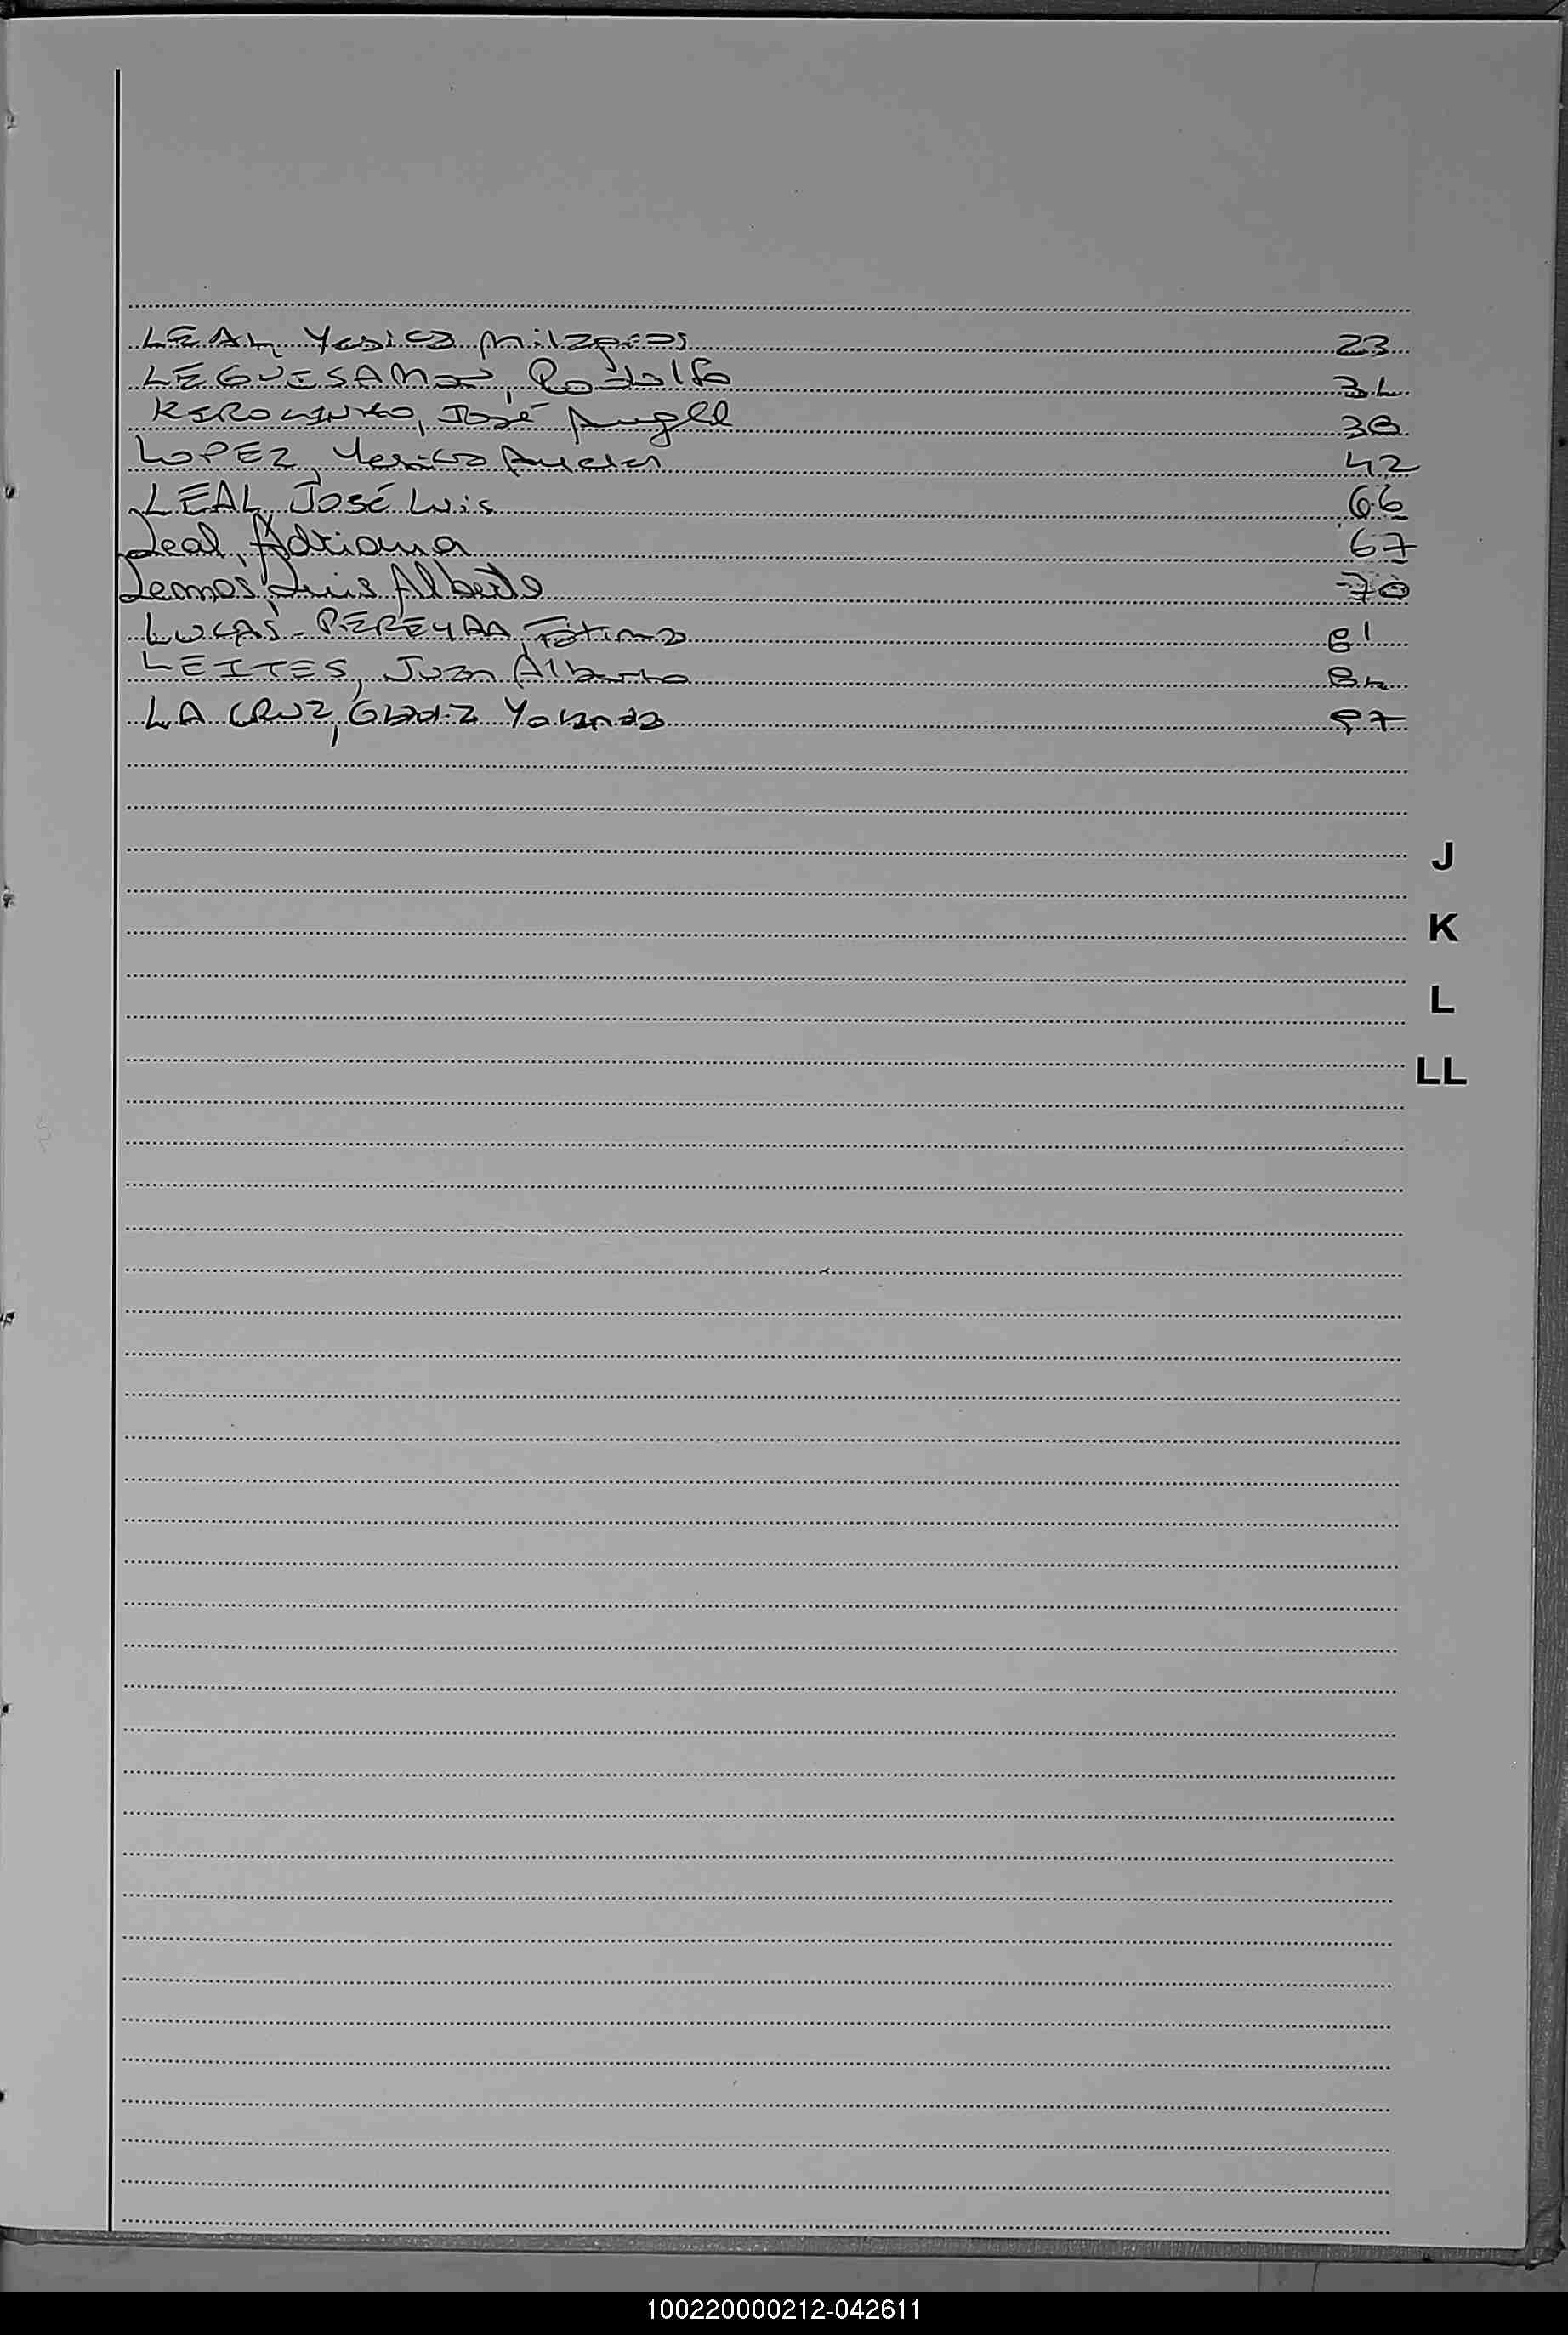 LEAL, Yesica Milagros 23
LEGUISAMO, Rodolfo 34
José Angel 38
LOPEZ, Yesica 42
LEAL, José Luis 66
Leal, Adriana 67
Lemos, Luis Alberto 70
LUCAS - PEREYRA, Fátima 81
LEITES, Juan Alberto 84
LA CRUZ, Gladiz Yolanda 97
J
K
L
LL
100220000212-042611